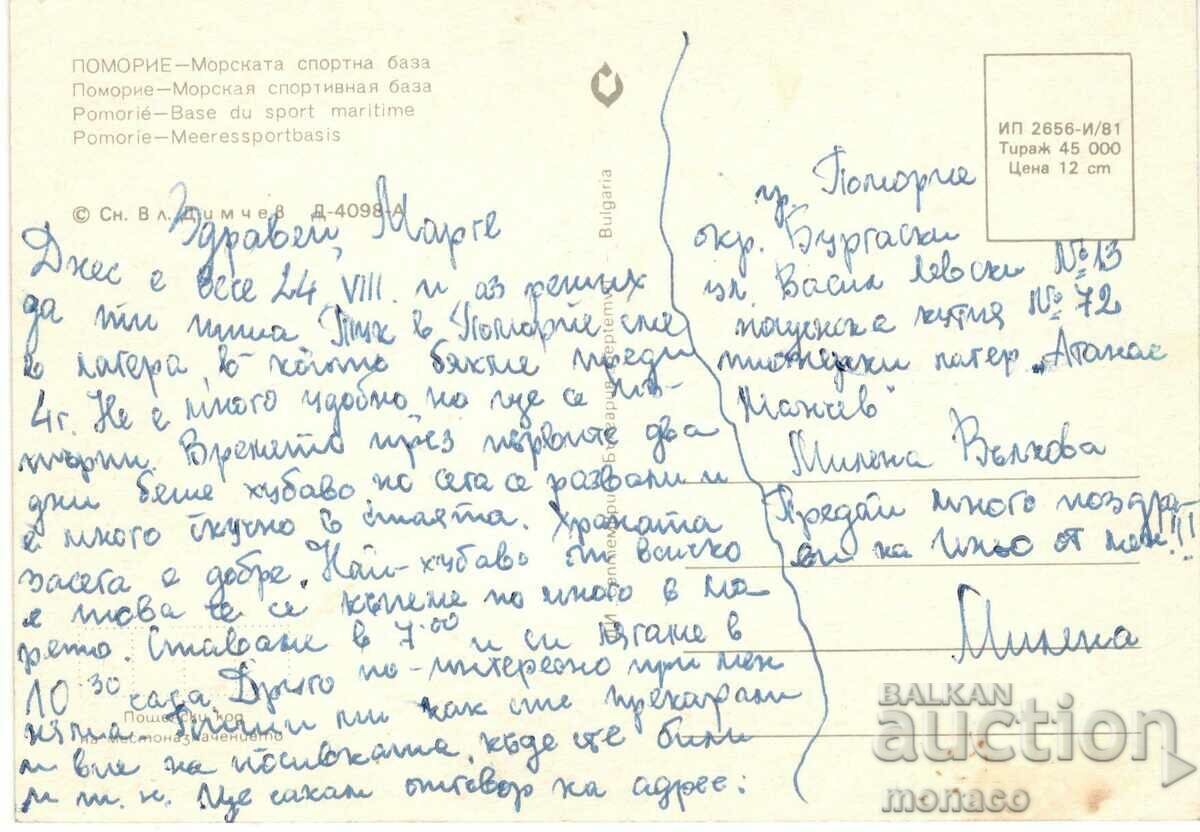 ПОМОРИЕ—Морската спортна база
Поморие—Морская спортивная база
Pomorié—Base du sport maritime
Pomorie—Meeressportbasis
© Сн. Вл. Димчев Д-4098-А
ИП 2656-И/81
Тираж 45 000
Цена 12 ст
Здравей, Марге
Днес е вече 24 VIII. и аз реших
да ти пиша. Тук в Поморие сме
в лагера, в който бяхме преди
4 г. Не е много удобно, но ще се тъ-
търпи. Времето през първите два
дни беше хубаво, но сега се развали и
е много скучно в стаята. Храната
засега е добре. Най-хубаво от всичко
е това че се къпеме по много в мо
рето. Ставаме в 7⁰⁰ и си лягаме в
10³⁰ часа. Друго по-интересно при мен
няма. Пиши ми как сте прекарали
и вие на почивката, къде сте били
и т. н. Ще чакам отговор на адрес:
гр. Поморие
окр. Бургаски
ул. Васил Левски №13
пощенска кутия №72
пионерски лагер „Атанас
Манчев"
Милена Вълкова
Предай много поздра-
ви на Иньо от мен!!!
Милена
Пощенски код
на местоназначението
Bulgaria
BALKAN
auction
monaco